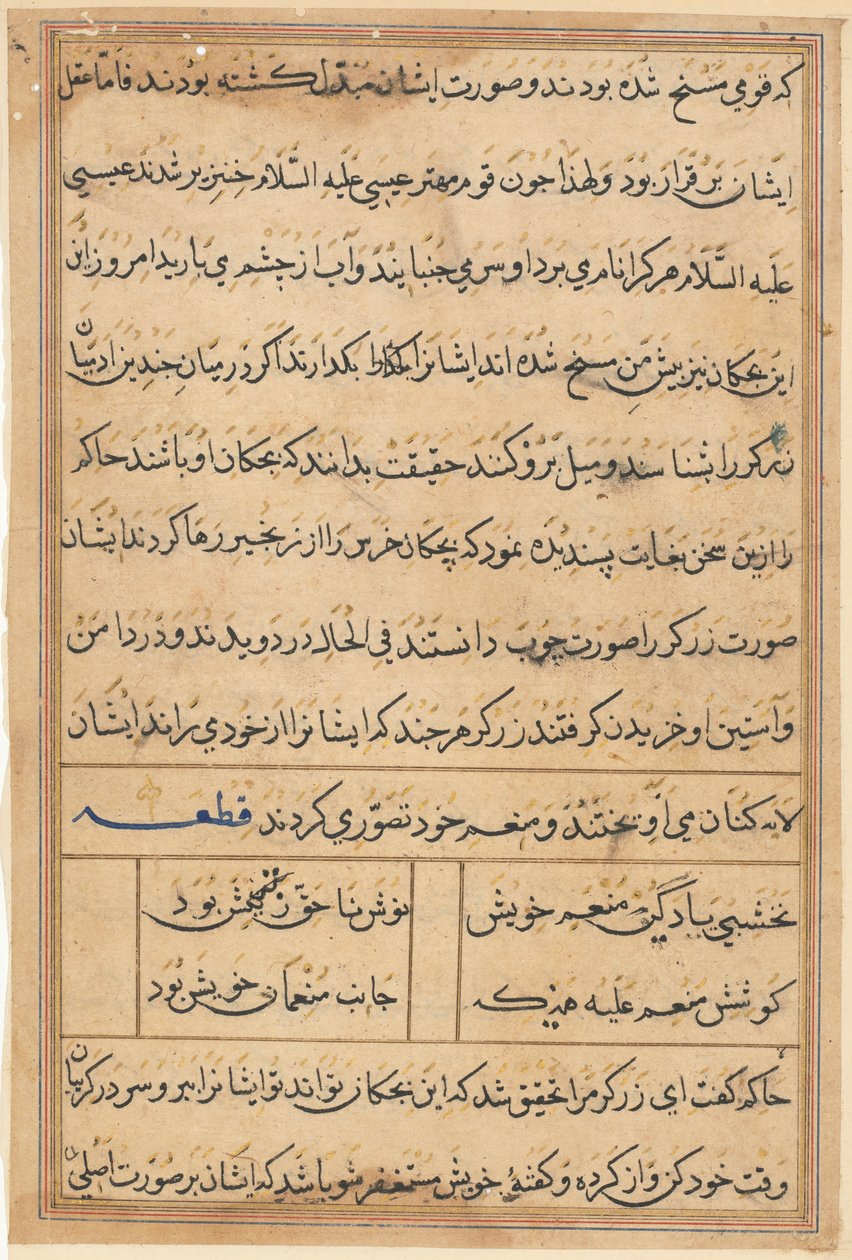 که قومي مسخ شده بودند و صورت ایشان مبدّل کشته بودند فامّا عقل
ایشان بر قرار بود ولهذا جون قوم مهتر عیسي علیه السّلام خنزیر شدند عیسي
علیه السّلام هر کرا نام مي برد او سر مي جنبایند و آب از چشم مي بارید امروز این
این بچکان نیز بیش من مسخ شده اند ایشانرا بکدارند اکر در میان جندین ادمیان
زرکر را بشناسند و میل برو کنند حقیقت بدانند که بچکان او باشند حاکم
را ازین سخن بغایت پسندیده نمود که بچکان خرس را از زنجیر رها کردند ایشان
صورت زرکر را صورت چوب دانستند في الحال در دویدند و در دامن
و آستین او خزیدن کرفتند زرکر هر جند که ایشانرا از خود مي راند ایشان
لابه کنان مي آویختند و منعم خود تصوّري کردند قطعه
نخشبي یاد کن منعم خویش نوش نا حقّ ز نیش بود
کوشش منعم علیه هر که جانب منعمان خویش بود
حاکم کفت اي زرکر مرا تحقیق شد که این بچکان تواند تو ایشانرا ببر و سر در کریبان
وقت خود کن و از کرده و کفتهٔ خویش مستغفر شو باشد که ایشان بر صورت اصلي